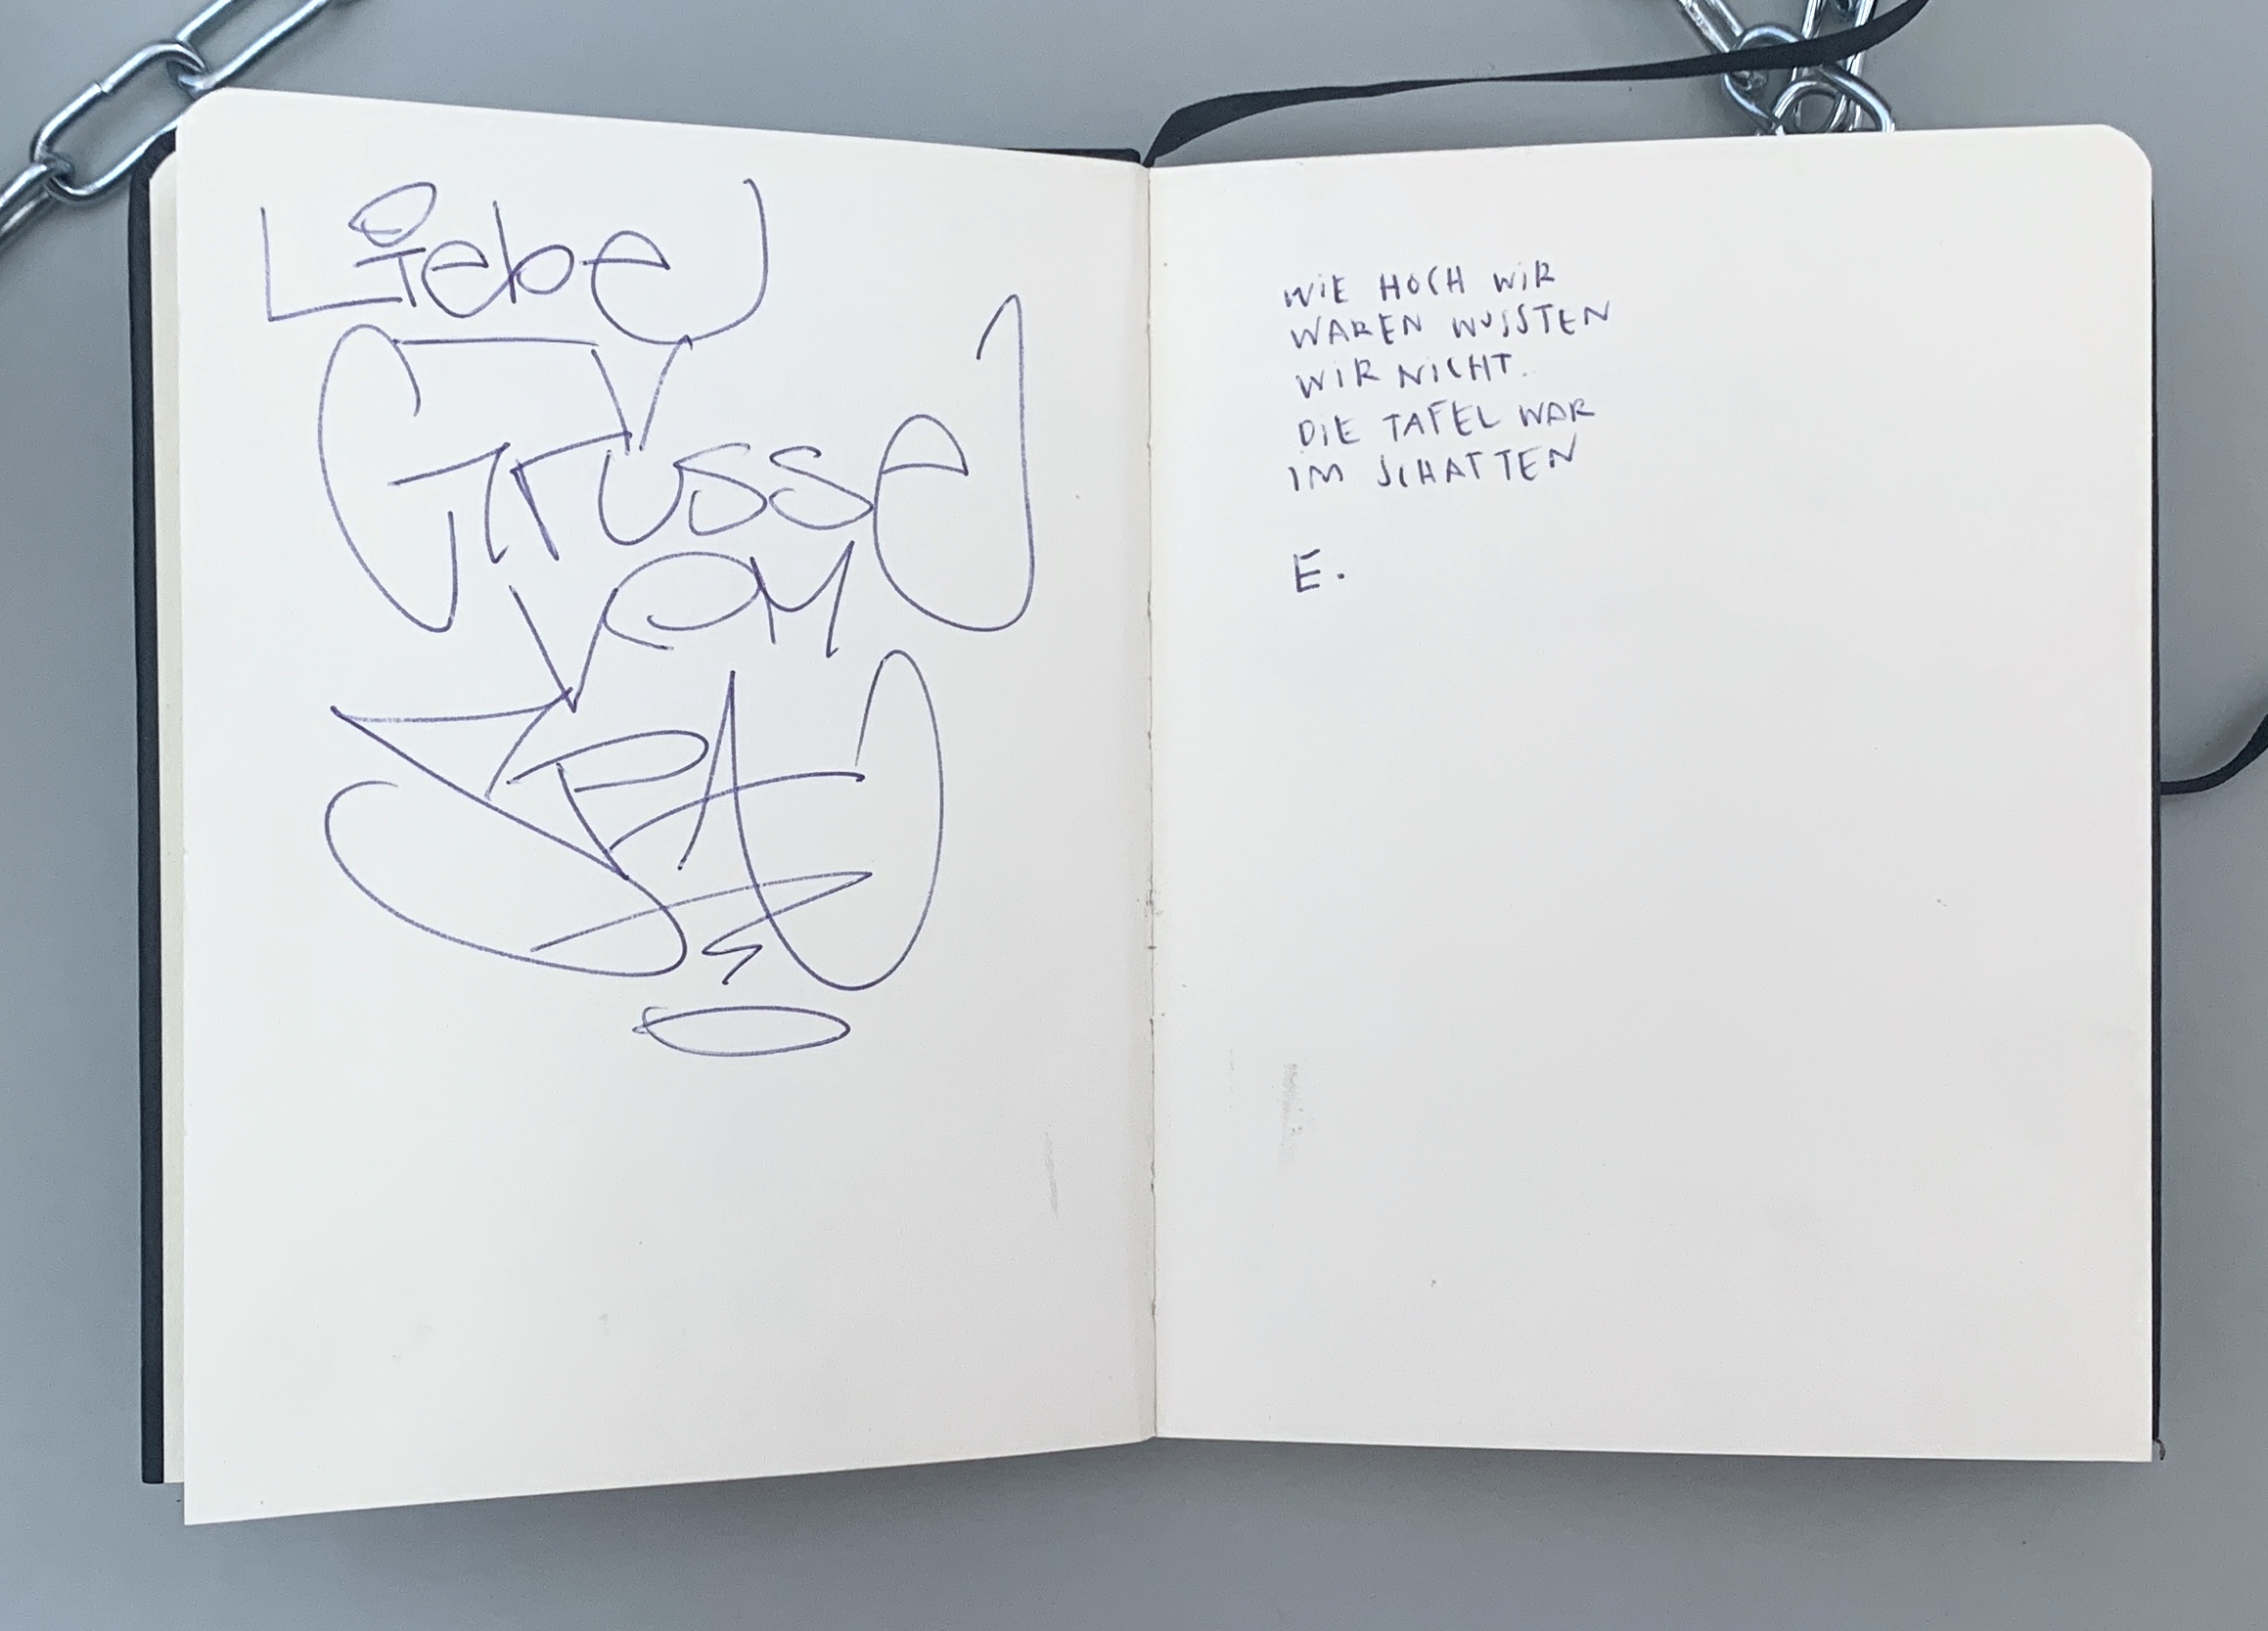 Liebe
Grüsse
VOM
WIE HOCH WIR
WAREN WUSSTEN
WIR NICHT.
DIE TAFEL WAR
IM SCHATTEN
E.